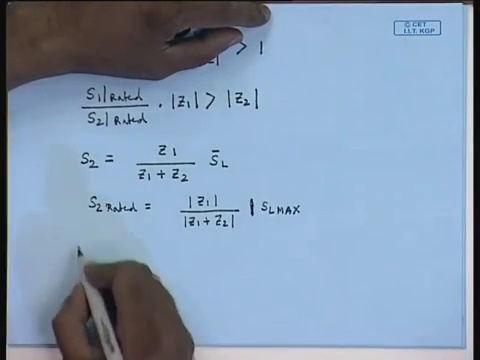 © CET
I.I.T. KGP
> 1
S1|Rated / S2|Rated . |Z1| > |Z2|
S2 = Z1 / (Z1 + Z2) S̄L
S2 Rated = |Z1| / |Z1 + Z2| | SLMAX